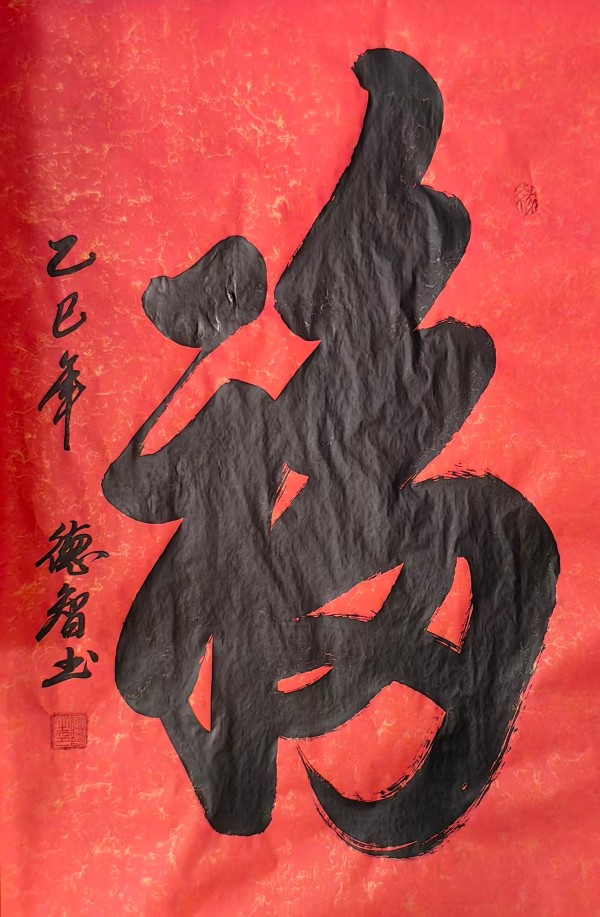 福
乙巳年
德智书